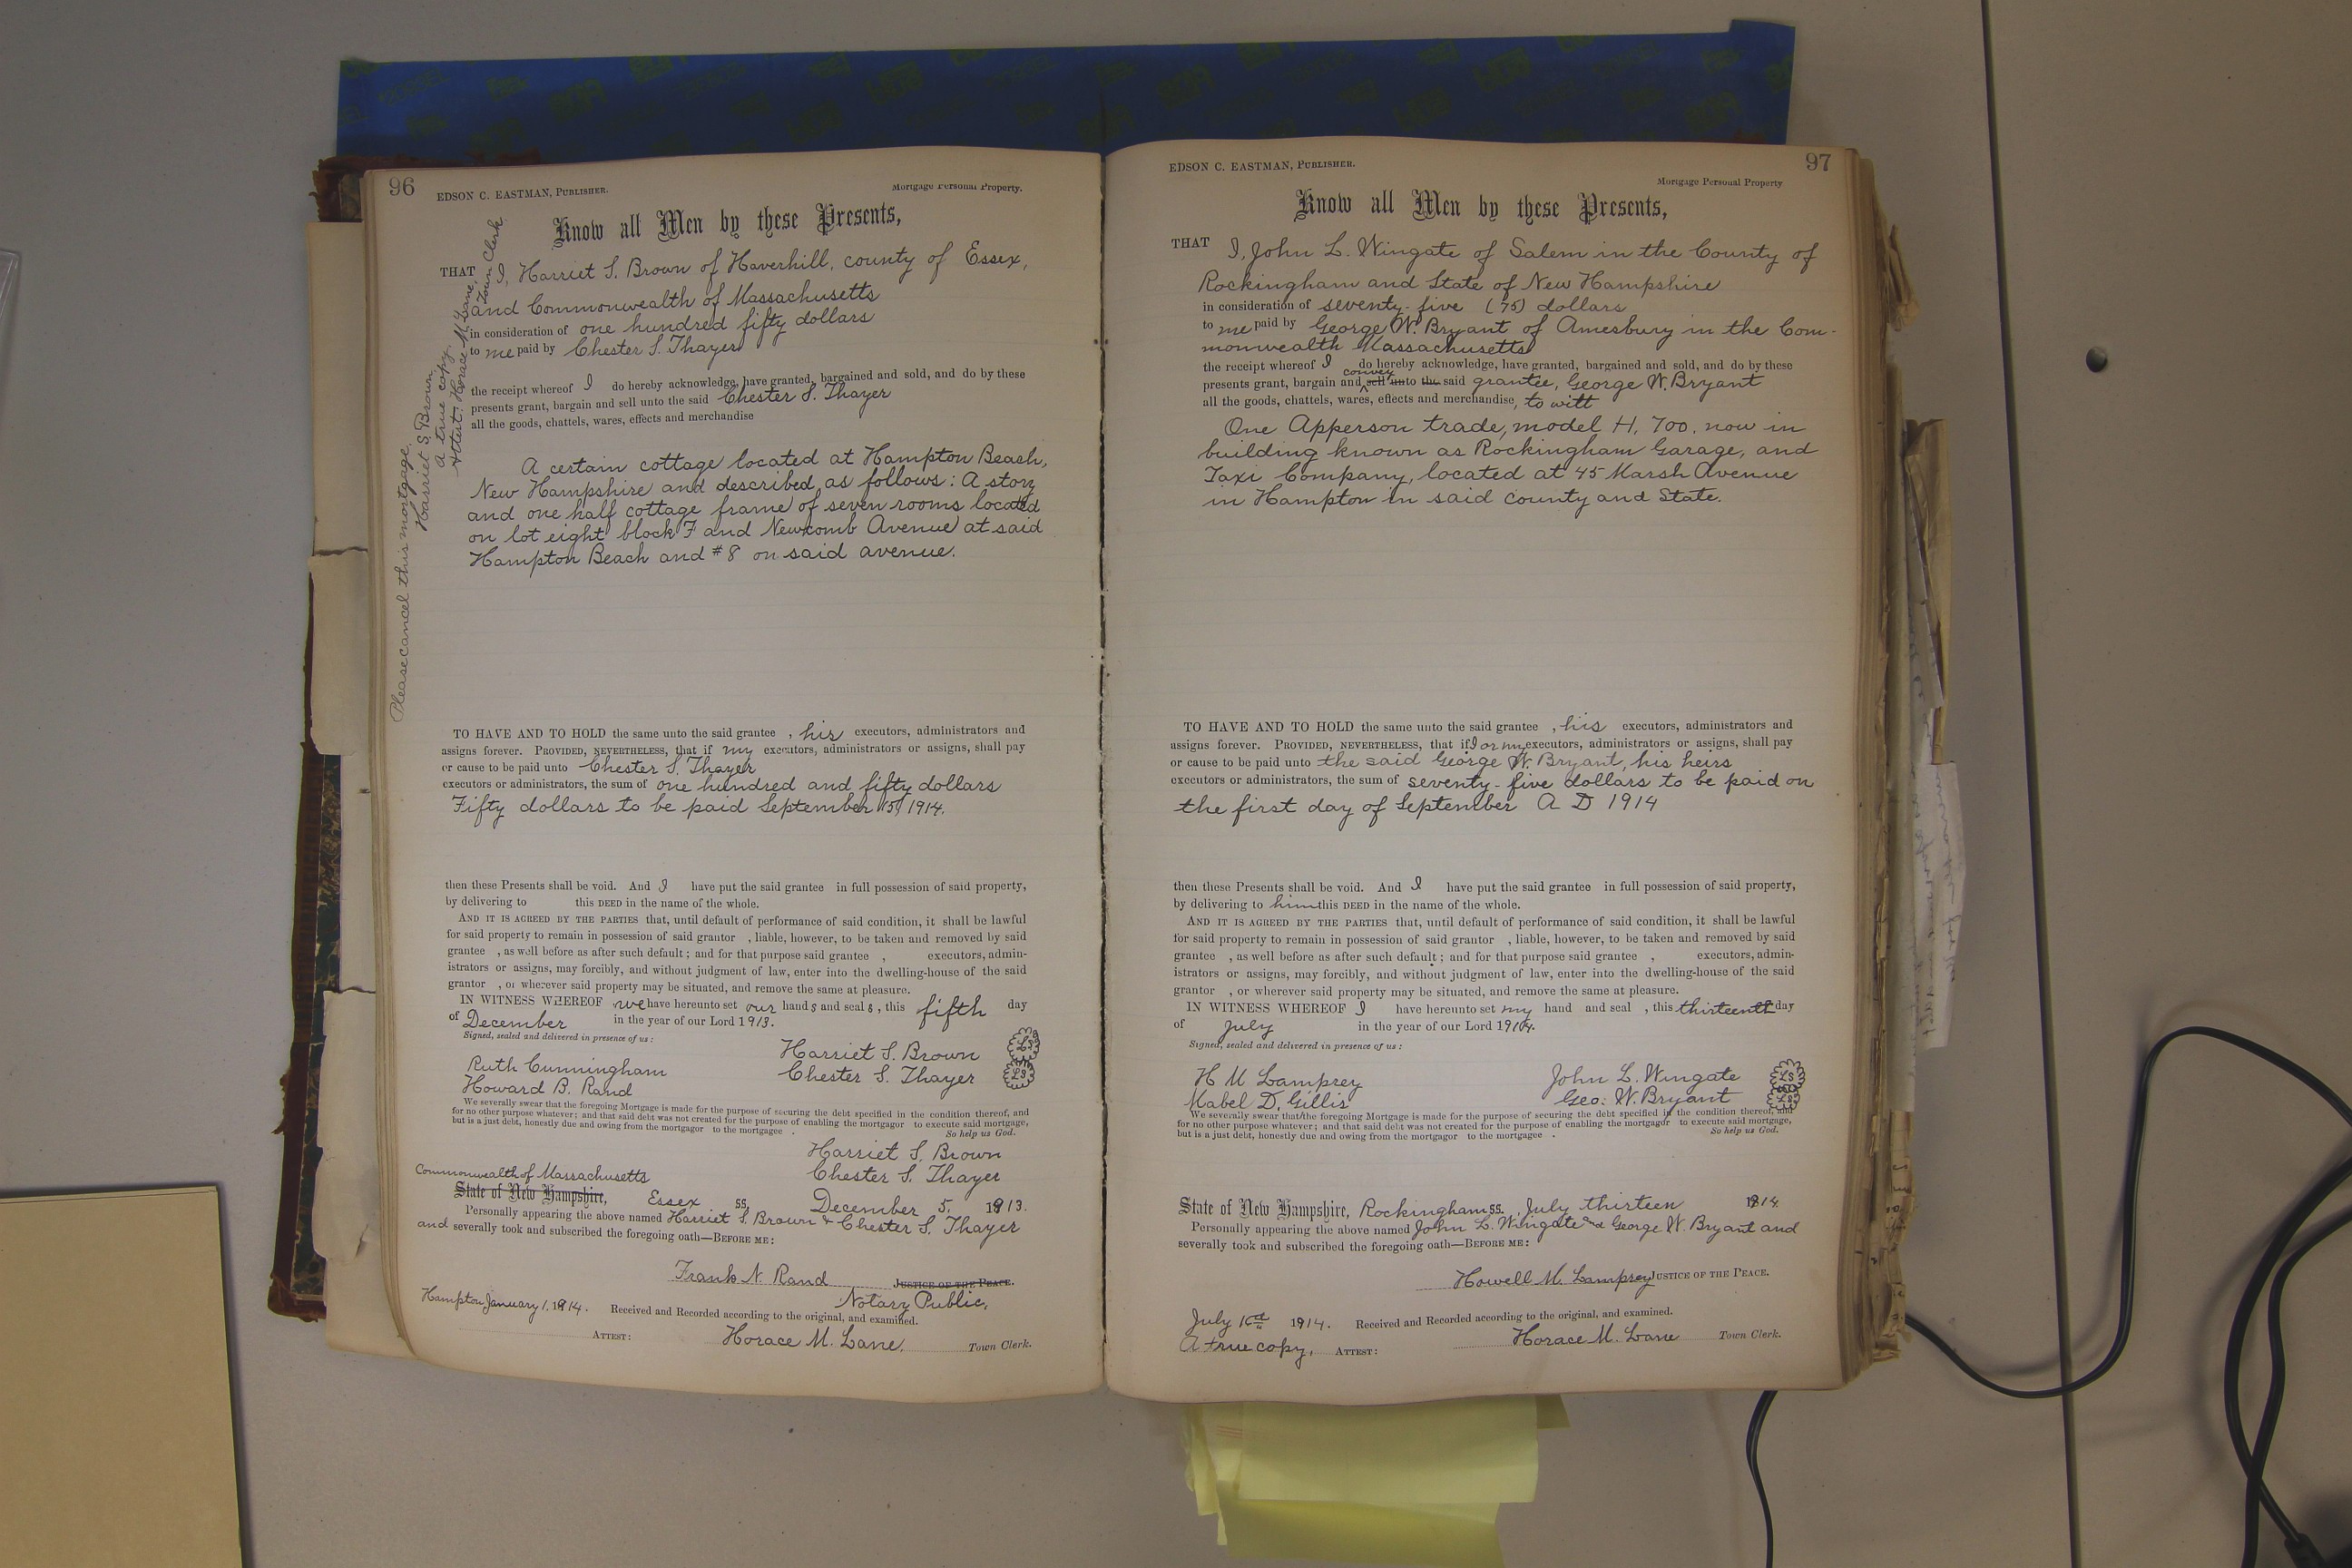 96
EDSON C. EASTMAN, PUBLISHER.
Mortgage Personal Property.
Know all Men by these Presents,
THAT I, Harriet S. Brown of Haverhill, county of Essex,
and Commonwealth of Massachusetts
in consideration of one hundred fifty dollars
to me paid by Chester S. Thayer
the receipt whereof I do hereby acknowledge, have granted, bargained and sold, and do by these
presents grant, bargain and sell unto the said Chester S. Thayer
all the goods, chattels, wares, effects and merchandise
A certain cottage located at Hampton Beach,
New Hampshire and described as follows: A story
and one half cottage frame of seven rooms located
on lot eight block F and Newcomb Avenue at said
Hampton Beach and #8 on said avenue.
Please cancel this mortgage.
Harriet S. Brown
A true copy
Attest: Horace M. Lane,
Town Clerk
TO HAVE AND TO HOLD the same unto the said grantee , his executors, administrators and
assigns forever. PROVIDED, NEVERTHELESS, that if my executors, administrators or assigns, shall pay
or cause to be paid unto Chester S. Thayer
executors or administrators, the sum of one hundred and fifty dollars
Fifty dollars to be paid September 15, 1914.
then these Presents shall be void. And I have put the said grantee in full possession of said property,
by delivering to this DEED in the name of the whole.
AND IT IS AGREED BY THE PARTIES that, until default of performance of said condition, it shall be lawful
for said property to remain in possession of said grantor , liable, however, to be taken and removed by said
grantee , as well before as after such default ; and for that purpose said grantee , executors, admin-
istrators or assigns, may forcibly, and without judgment of law, enter into the dwelling-house of the said
grantor , or wherever said property may be situated, and remove the same at pleasure.
IN WITNESS WHEREOF we have hereunto set our hands and seals, this fifth day
of December in the year of our Lord 1913.
Signed, sealed and delivered in presence of us :
Harriet S. Brown LS
Ruth Cunningham Chester S. Thayer LS
Howard B. Rand
We severally swear that the foregoing Mortgage is made for the purpose of securing the debt specified in the condition thereof, and
for no other purpose whatever ; and that said debt was not created for the purpose of enabling the mortgagor to execute said mortgage,
but is a just debt, honestly due and owing from the mortgagor to the mortgagee . So help us God.
Harriet S. Brown
Commonwealth of Massachusetts Chester S. Thayer
State of New Hampshire, Essex ss. December 5, 1913.
Personally appearing the above named Harriet S. Brown & Chester S. Thayer
and severally took and subscribed the foregoing oath—BEFORE ME:
Frank N. Rand JUSTICE OF THE PEACE.
Notary Public,
Hampton, January 1, 1914. Received and Recorded according to the original, and examined.
ATTEST: Horace M. Lane. Town Clerk.
97
EDSON C. EASTMAN, PUBLISHER.
Mortgage Personal Property
Know all Men by these Presents,
THAT I, John L. Wingate of Salem in the County of
Rockingham and State of New Hampshire
in consideration of seventy-five (75) dollars
to me paid by George W. Bryant of Amesbury in the Com-
monwealth Massachusetts
the receipt whereof I do hereby acknowledge, have granted, bargained and sold, and do by these
convey
presents grant, bargain and sell unto the said grantee, George W. Bryant
all the goods, chattels, wares, effects and merchandise, to witt
One Apperson trade, model H, 700, now in
building known as Rockingham Garage, and
Taxi Company, located at 45 Marsh Avenue
in Hampton in said county and State.
TO HAVE AND TO HOLD the same unto the said grantee , his executors, administrators and
assigns forever. PROVIDED, NEVERTHELESS, that if I or my executors, administrators or assigns, shall pay
or cause to be paid unto the said George W. Bryant, his heirs
executors or administrators, the sum of seventy-five dollars to be paid on
the first day of September A D 1914
then these Presents shall be void. And I have put the said grantee in full possession of said property,
by delivering to him this DEED in the name of the whole.
AND IT IS AGREED BY THE PARTIES that, until default of performance of said condition, it shall be lawful
for said property to remain in possession of said grantor , liable, however, to be taken and removed by said
grantee , as well before as after such default ; and for that purpose said grantee , executors, admin-
istrators or assigns, may forcibly, and without judgment of law, enter into the dwelling-house of the said
grantor , or wherever said property may be situated, and remove the same at pleasure.
IN WITNESS WHEREOF I have hereunto set my hand and seal , this thirteenth day
of July in the year of our Lord 1914.
Signed, sealed and delivered in presence of us :
H M Lamprey John L. Wingate LS
Mabel D. Gillis Geo. W. Bryant LS
We severally swear that the foregoing Mortgage is made for the purpose of securing the debt specified in the condition thereof, and
for no other purpose whatever ; and that said debt was not created for the purpose of enabling the mortgagor to execute said mortgage,
but is a just debt, honestly due and owing from the mortgagor to the mortgagee . So help us God.
State of New Hampshire, Rockingham ss. July thirteen 1914.
Personally appearing the above named John L. Wingate and George W. Bryant and
severally took and subscribed the foregoing oath—BEFORE ME:
Howell M. Lamprey JUSTICE OF THE PEACE.
July 1914. Received and Recorded according to the original, and examined.
A true copy, ATTEST: Horace M. Lane Town Clerk.